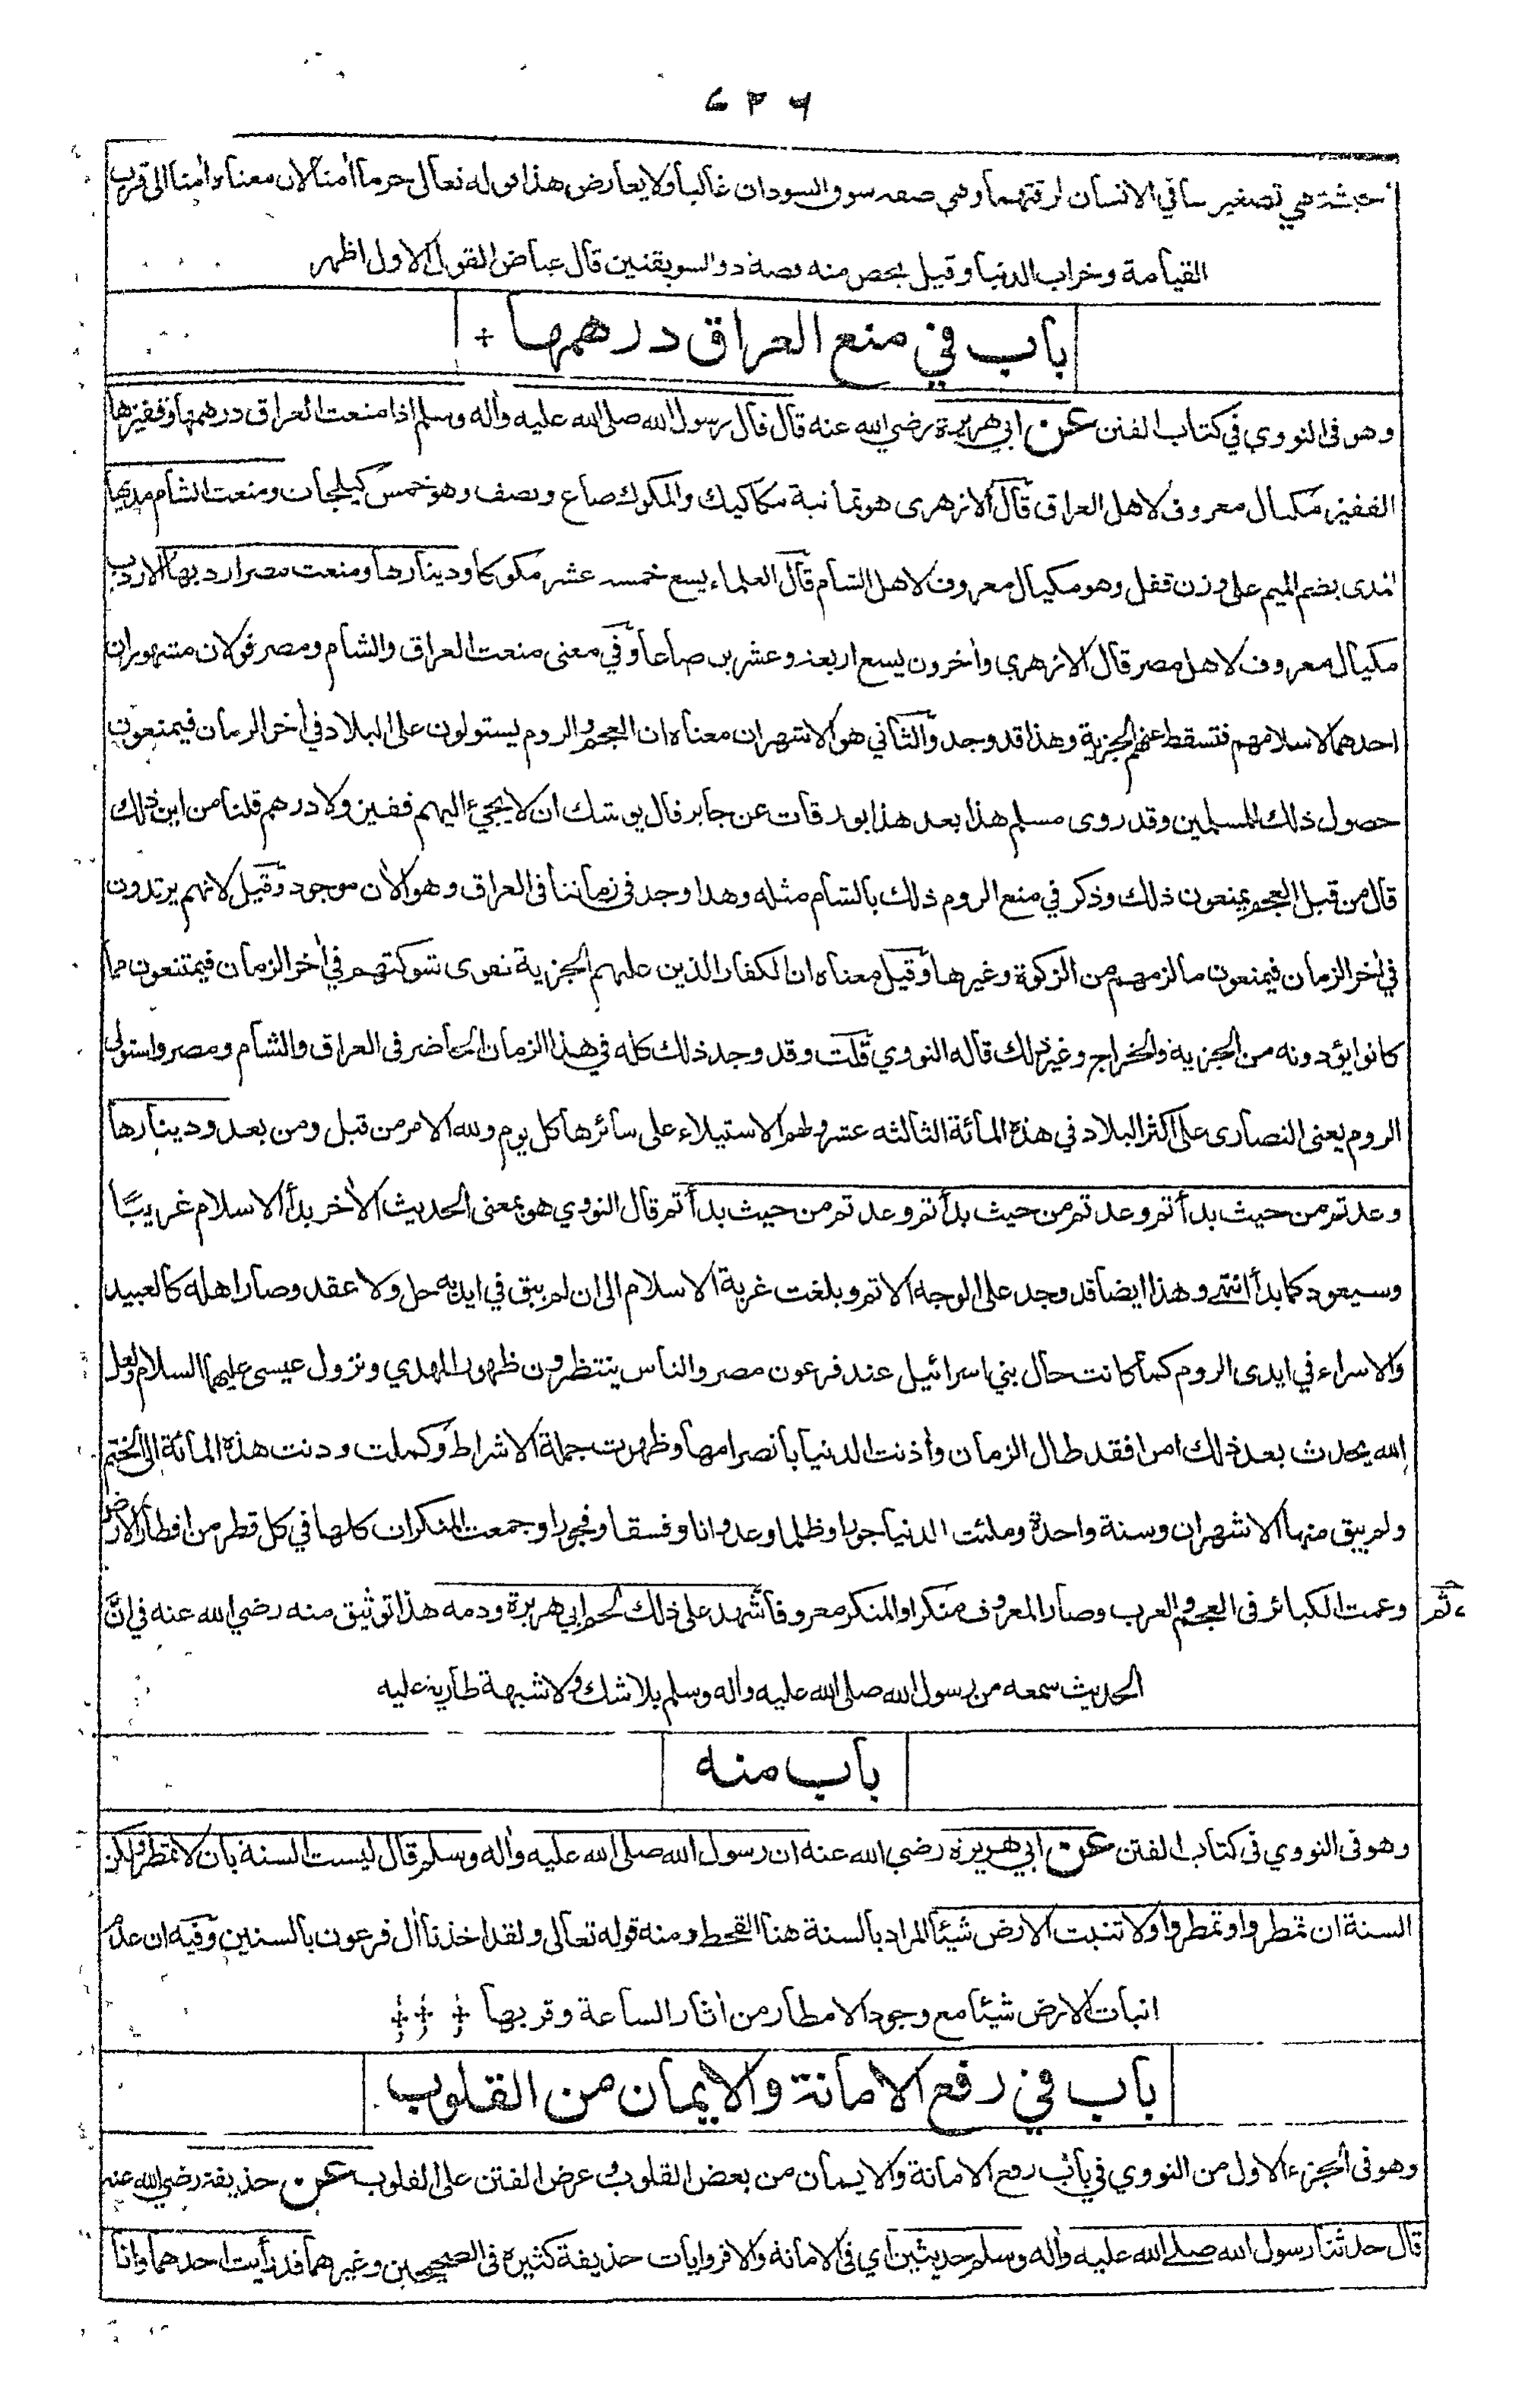 ۶۳۶
حبشة هي تصغير ساقي الانسان لرقتهما وهي صفه سوق السودان غالبا ولا يعارض هذا قوله تعالى حرما آمنا لان معناه آمنا الى قرب
القيامة وخراب الدنيا وقيل يخص منه قصة ذو السويقتين قال عياض القول الاول اظهر
باب في منع العراق درهمها
وهو في النووي في كتاب الفتن عن ابي هريرة رضي الله عنه قال قال رسول الله صلى الله عليه وآله وسلم اذا منعت العراق درهمها وقفيزها
القفيز مكيال معروف لاهل العراق قال الازهرى هو ثمانية مكاكيك والمكوك صاع ونصف وهو خمس كيلجات ومنعت الشام مديها
المدى بضم الميم على وزن قفل وهو مكيال معروف لاهل الشام قال العلماء يسع خمسه عشر مكوكا ودينارها ومنعت مصر اردبها الاردب
مكيال معروف لاهل مصر قال الازهري وآخرون يسع اربعة وعشرين صاعا وفي معنى منعت العراق والشام ومصر قولان مشهوران
احدهما لاسلامهم فتسقط عنهم الجزية وهذا قد وجد والثاني هو الاشهر ان معناه ان العجم والروم يستولون على البلاد في آخر الزمان فيمنعون
حصول ذلك للمسلمين وقد روى مسلم هذا بعد هذا بورقات عن جابر قال يوشك ان لا يجيء اليهم قفيز ولا درهم قلنا من اين ذلك
قال من قبل العجم يمنعون ذلك وذكر في منع الروم ذلك بالشام مثله وهذا وجد في زماننا في العراق وهو الآن موجود وقيل لانهم يرتدون
في آخر الزمان فيمنعون ما لزمهم من الزكوة وغيرها وقيل معناه ان الكفار الذين عليهم الجزية تقوى شوكتهم في آخر الزمان فيمتنعون مما
كانوا يؤدونه من الجزية والخراج وغير ذلك قاله النووي قلت وقد وجد ذلك كله في هذا الزمان الحاضر في العراق والشام ومصر واستولى
الروم يعنى النصارى على اكثر البلاد في هذه المائة الثالثه عشر ولهم الاستيلاء على سائرها كل يوم ولله الامر من قبل ومن بعد ودينارها
وعدتم من حيث بدأتم وعدتم من حيث بدأتم وعدتم من حيث بدأتم قال النووي هو بمعنى الحديث الآخر بدأ الاسلام غريبًا
وسيعود كما بدأ انتهى وهذا ايضا قد وجد على الوجه الاتم وبلغت غربة الاسلام الى ان لم يبق في ايديه حل ولا عقد وصار اهله كالعبيد
والاسراء في ايدى الروم كما كانت حال بني اسرائيل عند فرعون مصر والناس ينتظرون ظهور المهدي ونزول عيسى عليهما السلام ولعل
الله يحدث بعد ذلك امرا فقد طال الزمان وآذنت الدنيا بانصرامها وظهرت جملة الاشراط وكملت ودنت هذه المائة الى الختم
ولم يبق منها الا شهران وسنة واحدة وملئت الدنيا جورا وظلما وعدوانا وفسقا وفجورا وجمعت المنكرات كلها في كل قطر من اقطار الارض
وعمت الكبائر في العجم والعرب وصار المعروف منكرا والمنكر معروفا شهد على ذلك لحم ابي هريرة ودمه هذا توثيق منه رضي الله عنه في انّ
ثم
الحديث سمعه من رسول الله صلى الله عليه وآله وسلم بلا شك ولا شبهة طارية عليه
باب منه
وهو في النووي في كتاب الفتن عن ابي هريرة رضي الله عنه ان رسول الله صلى الله عليه وآله وسلم قال ليست السنة بان لا تمطروا ولكن
السنة ان تمطروا وتمطروا ولا تنبت الارض شيئا المراد بالسنة هنا القحط ومنه قوله تعالى ولقد اخذنا آل فرعون بالسنين وفيه ان عدم
انبات الارض شيئا مع وجود الامطار من آثار الساعة وقربها
باب في رفع الامانة والايمان من القلوب
وهو في الجزء الاول من النووي في باب رفع الامانة والايمان من بعض القلوب وعرض الفتن على القلوب عن حذيفة رضي الله عنه
قال حدثنا رسول الله صلى الله عليه وآله وسلم حديثين اي في الامانة والا فروايات حذيفة كثيرة في الصحيحين وغيرهما قد رأيت احدهما وانا